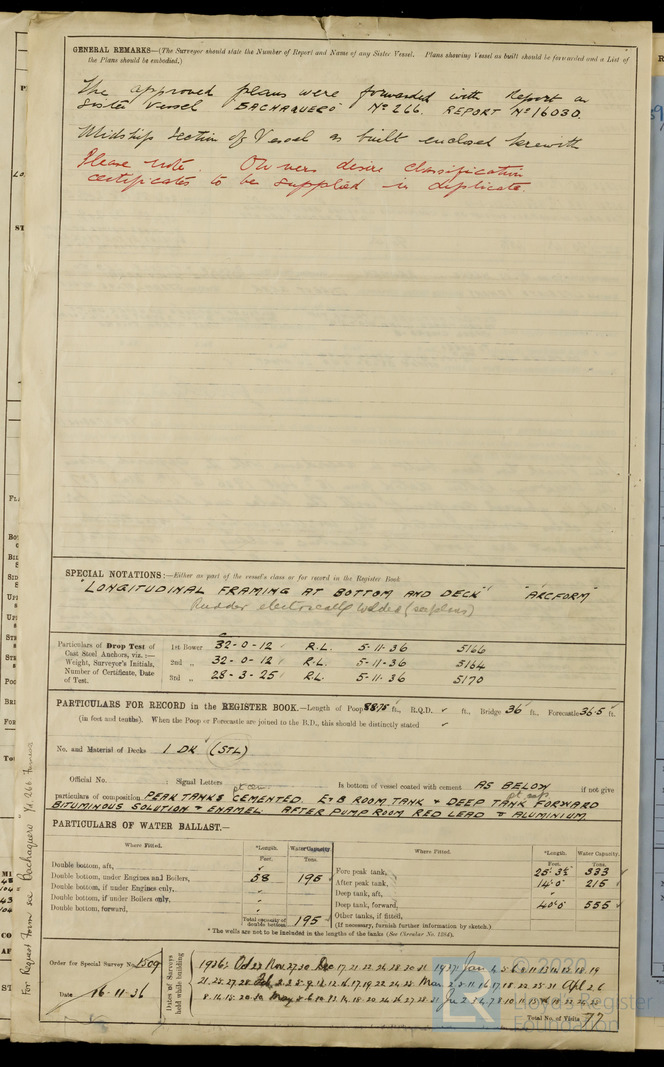 GENERAL REMARKS—(The Surveyor should state the Number of Report and Name of any Sister Vessel. Plans showing Vessel as built should be forwarded and a List of
the Plans should be embodied.)
The approved plans were forwarded with Report on
Sister Vessel BACHAQUERO No 266. REPORT No 16030.
Midship Section of Vessel as built enclosed herewith
Please note. Owners desire classification
certificates to be supplied in duplicate.
SPECIAL NOTATIONS:—Either as part of the vessel's class or for record in the Register Book
"LONGITUDINAL FRAMING AT BOTTOM AND DECK" "ARCFORM"
Rudder electrically welded (see plans)
Particulars of Drop Test of
Cast Steel Anchors, viz.:—
Weight, Surveyor's Initials,
Number of Certificate, Date
of Test.
1st Bower 32-0-12 R.L. 5-11-36 5166
2nd „ 32-0-12 R.L. 5-11-36 5164
3rd „ 28-3-25 R.L. 5-11-36 5170
PARTICULARS FOR RECORD in the REGISTER BOOK.—Length of Poop 88.75 ft., R.Q.D. ft., Bridge 36 ft., Forecastle 36.5 ft.
(in feet and tenths). When the Poop or Forecastle are joined to the B.D., this should be distinctly stated
No. and Material of Decks 1 DK (STL)
Official No. ; Signal Letters Is bottom of vessel coated with cement AS BELOW if not give
particulars of composition PEAK TANKS CEMENTED. E & B ROOM TANK & DEEP TANK FORWARD
BITUMINOUS SOLUTION & ENAMEL. AFTER PUMP ROOM RED LEAD & ALUMINIUM
PARTICULARS OF WATER BALLAST.—
Where Fitted. *Length. Feet. Water Capacity. Tons.
Double bottom, aft,
Double bottom, under Engines and Boilers, 58 195
Double bottom, if under Engines only,
Double bottom, if under Boilers only,
Double bottom, forward,
Total capacity of double bottom 195
Where Fitted. *Length. Feet. Water Capacity. Tons.
Fore peak tank, 333
After peak tank, 14'-0" 215
Deep tank, aft,
Deep tank, forward, 40'-0" 555
Other tanks, if fitted,
(If necessary, furnish further information by sketch.)
* The wells are not to be included in the lengths of the tanks (See Circular No. 1284).
Order for Special Survey No. 1309
Date 16-11-36
Dates of Surveys held while building
1936: Oct Nov Dec 1937 Jan
Feb Mar Apl
May
Total No. of Visits 77
For Request Form see "Bachaquero" Yd. 266
© 2020
Lloyd's Register
Foundation